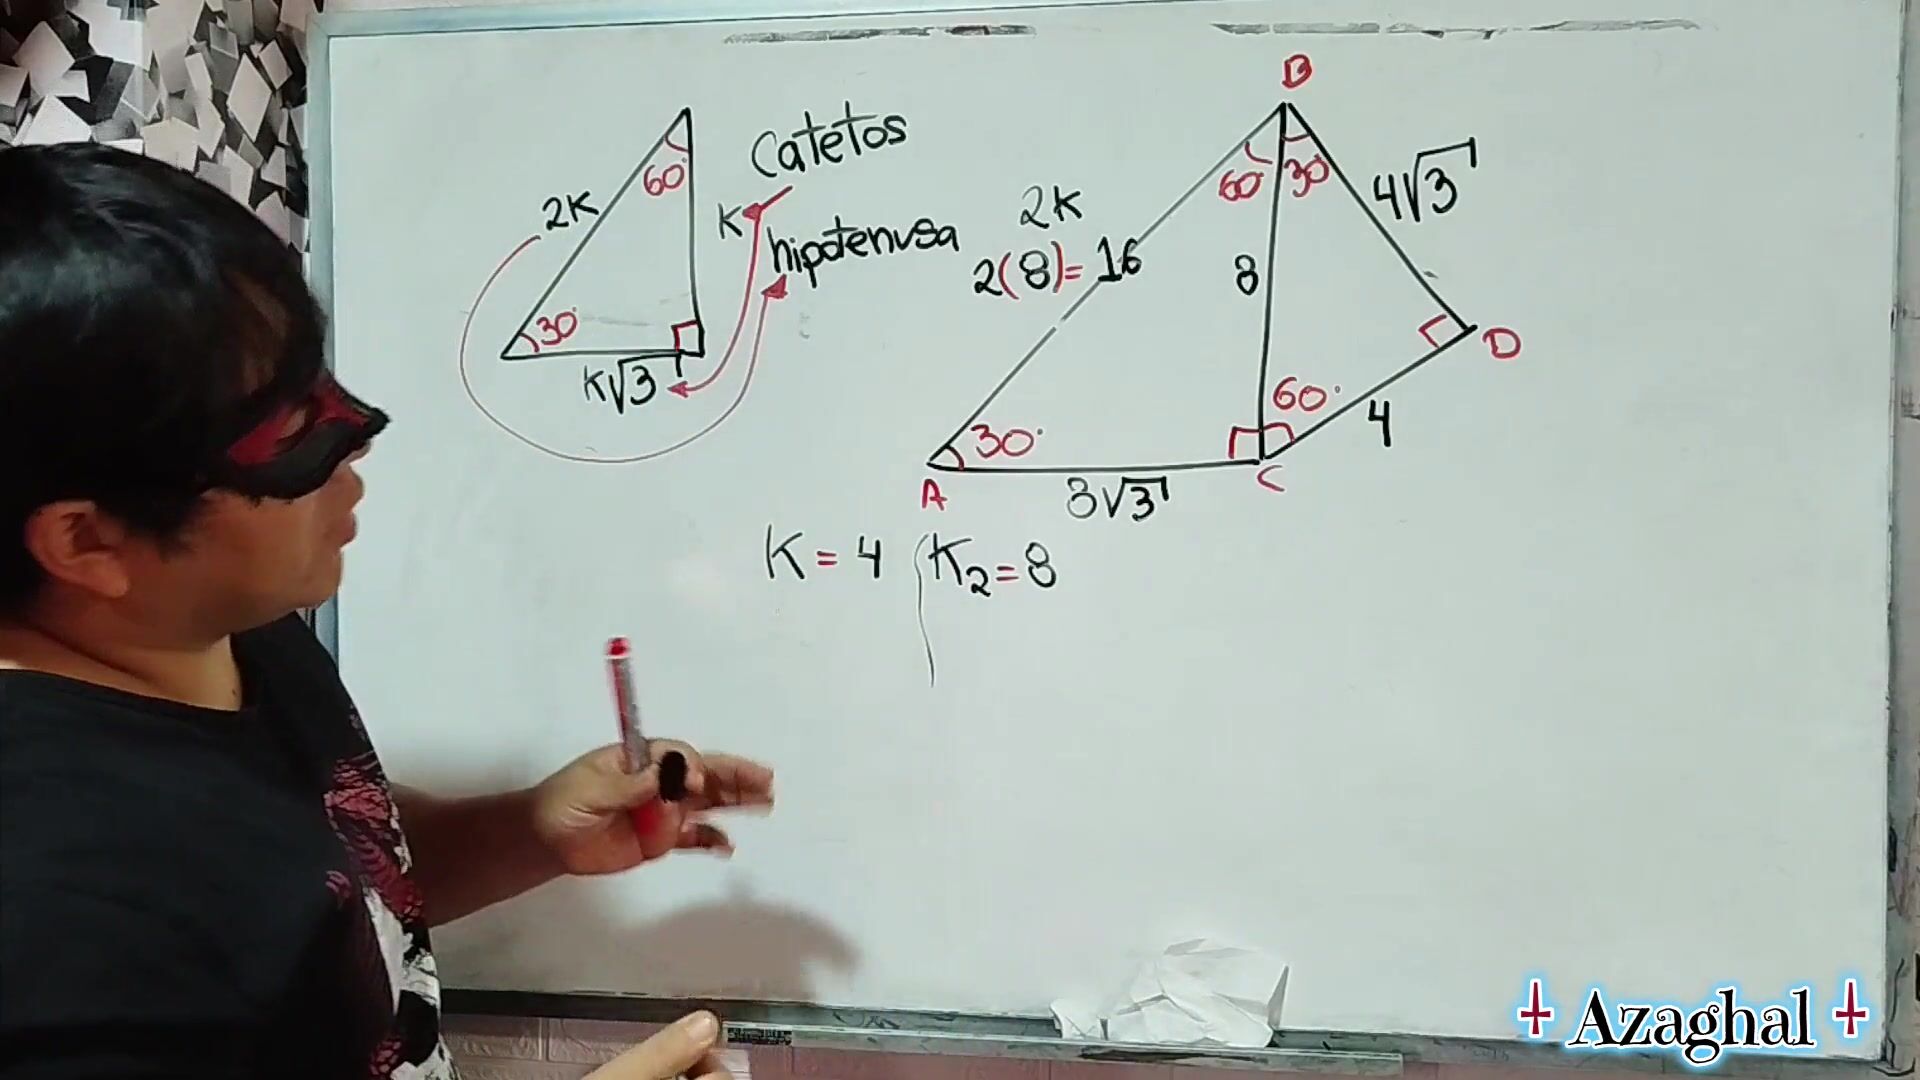 60°
2K
K
30°
K√3
Catetos
hipotenusa
B
60° 30°
4√3
2K
2(8)=16
8
D
30°
60°
4
A
8√3
C
K = 4
K₂ = 8
Azaghal